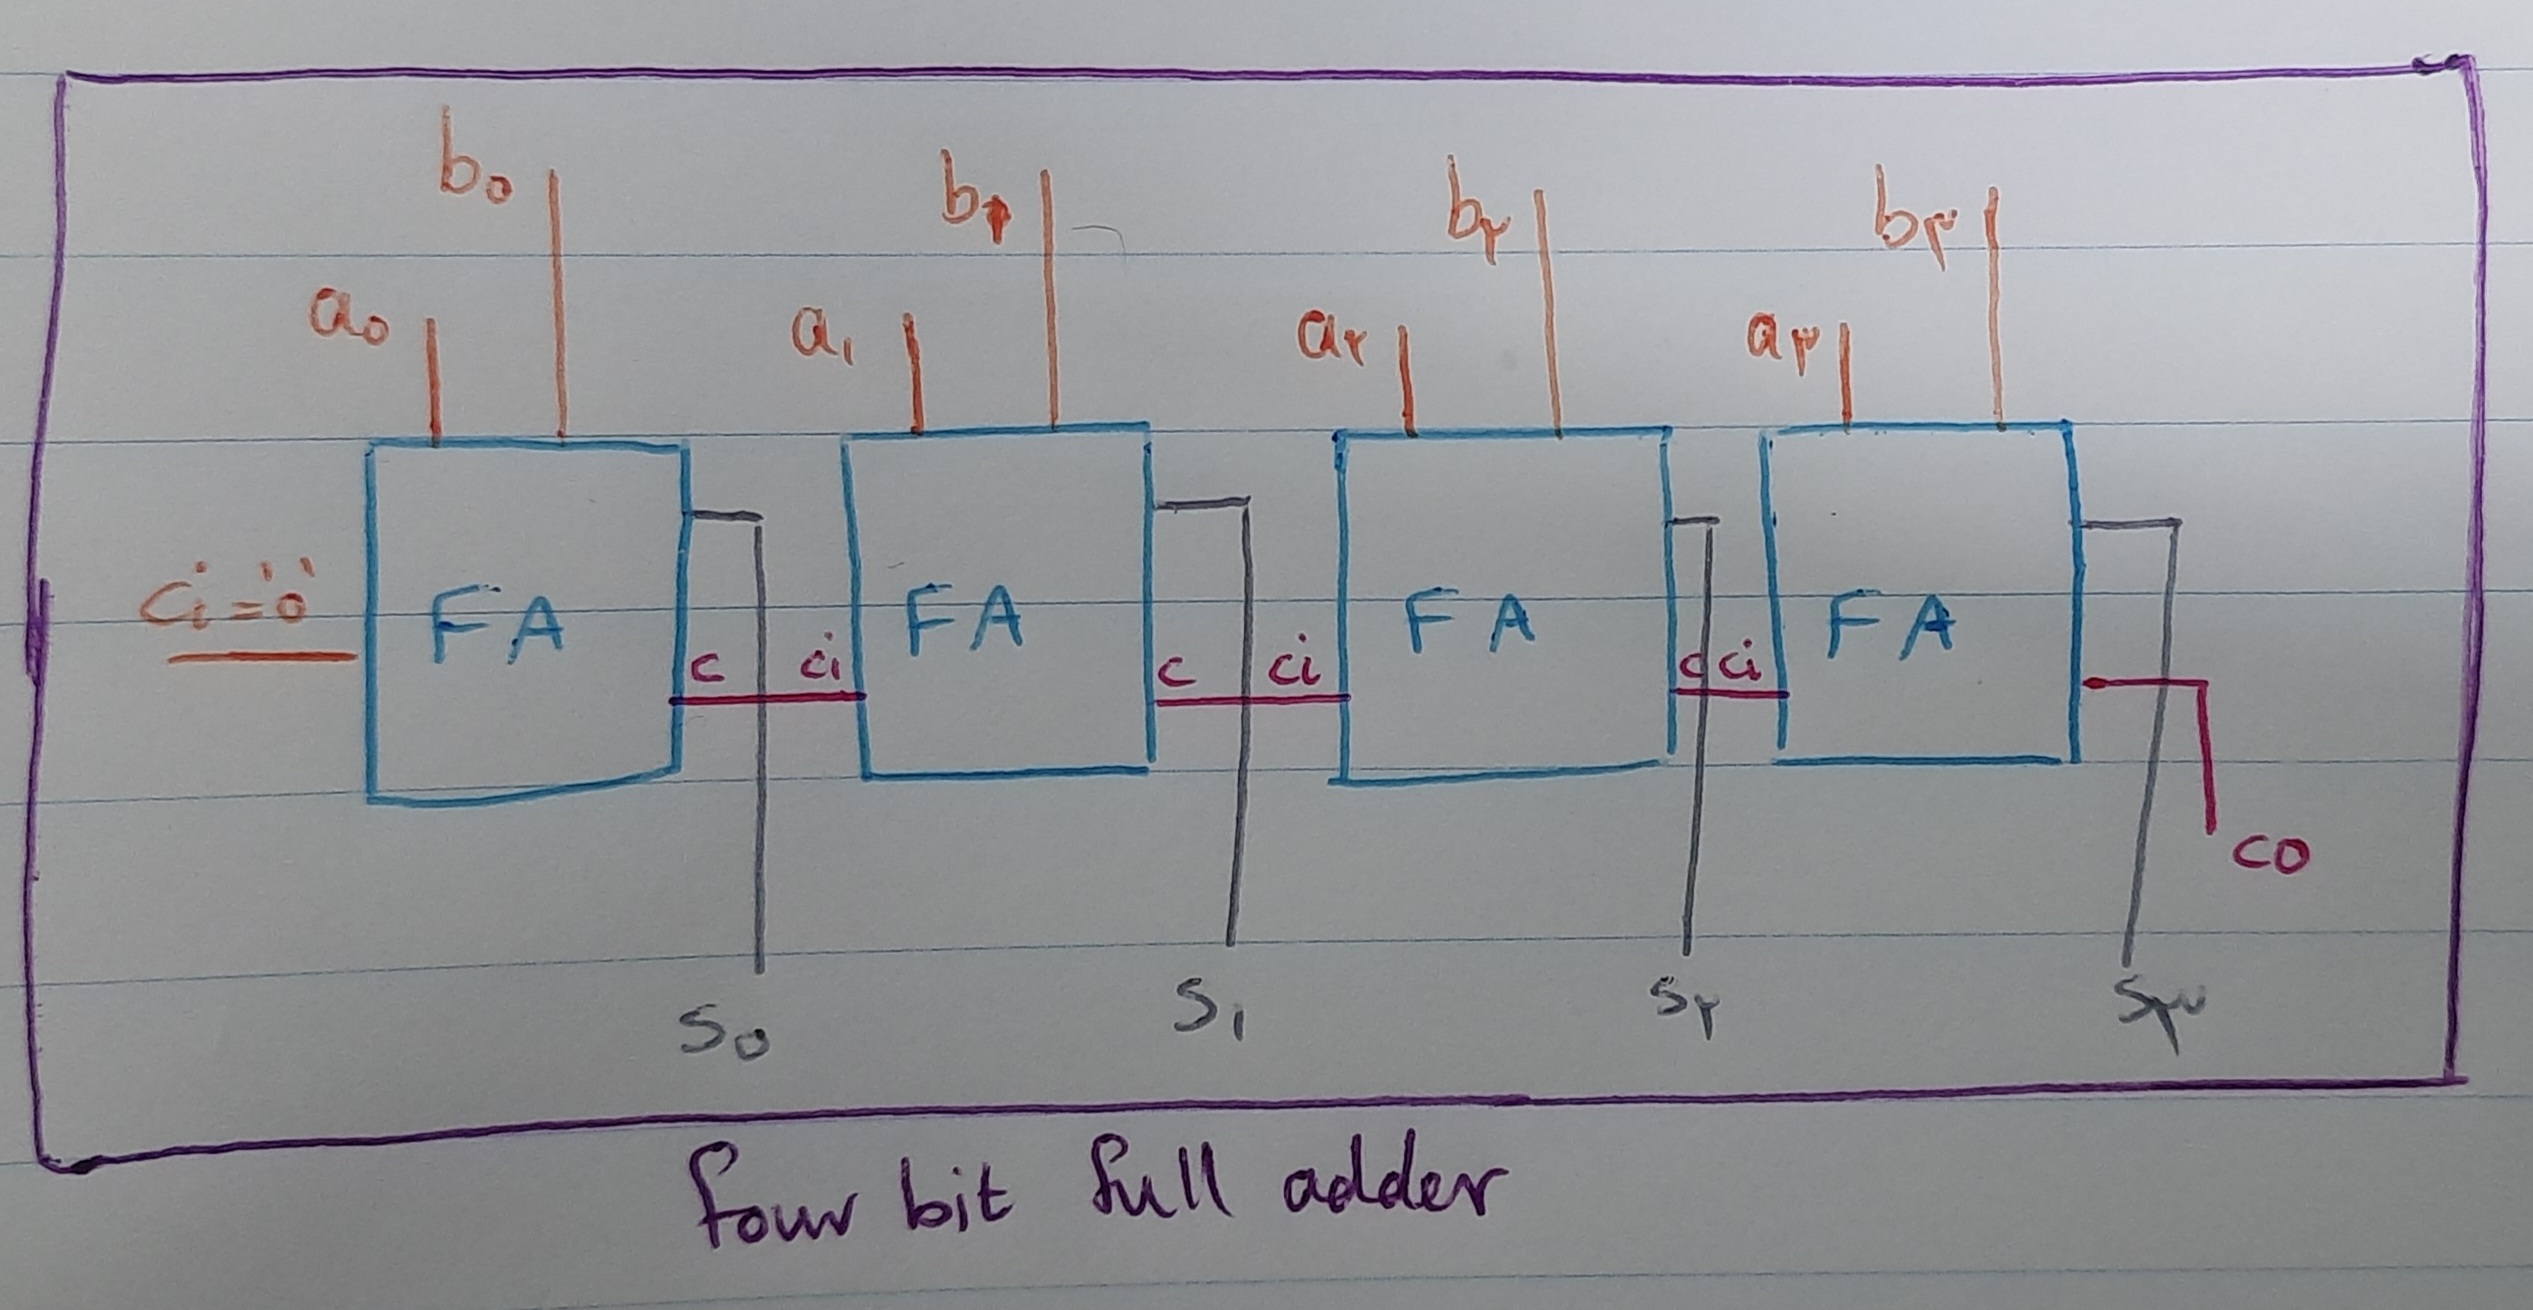 b۰ b۱ b۲ b۳
a۰ a۱ a۲ a۳
Ci='0'
FA FA FA FA
C Ci C Ci C Ci
CO
S۰ S۱ S۲ S۳
four bit full adder